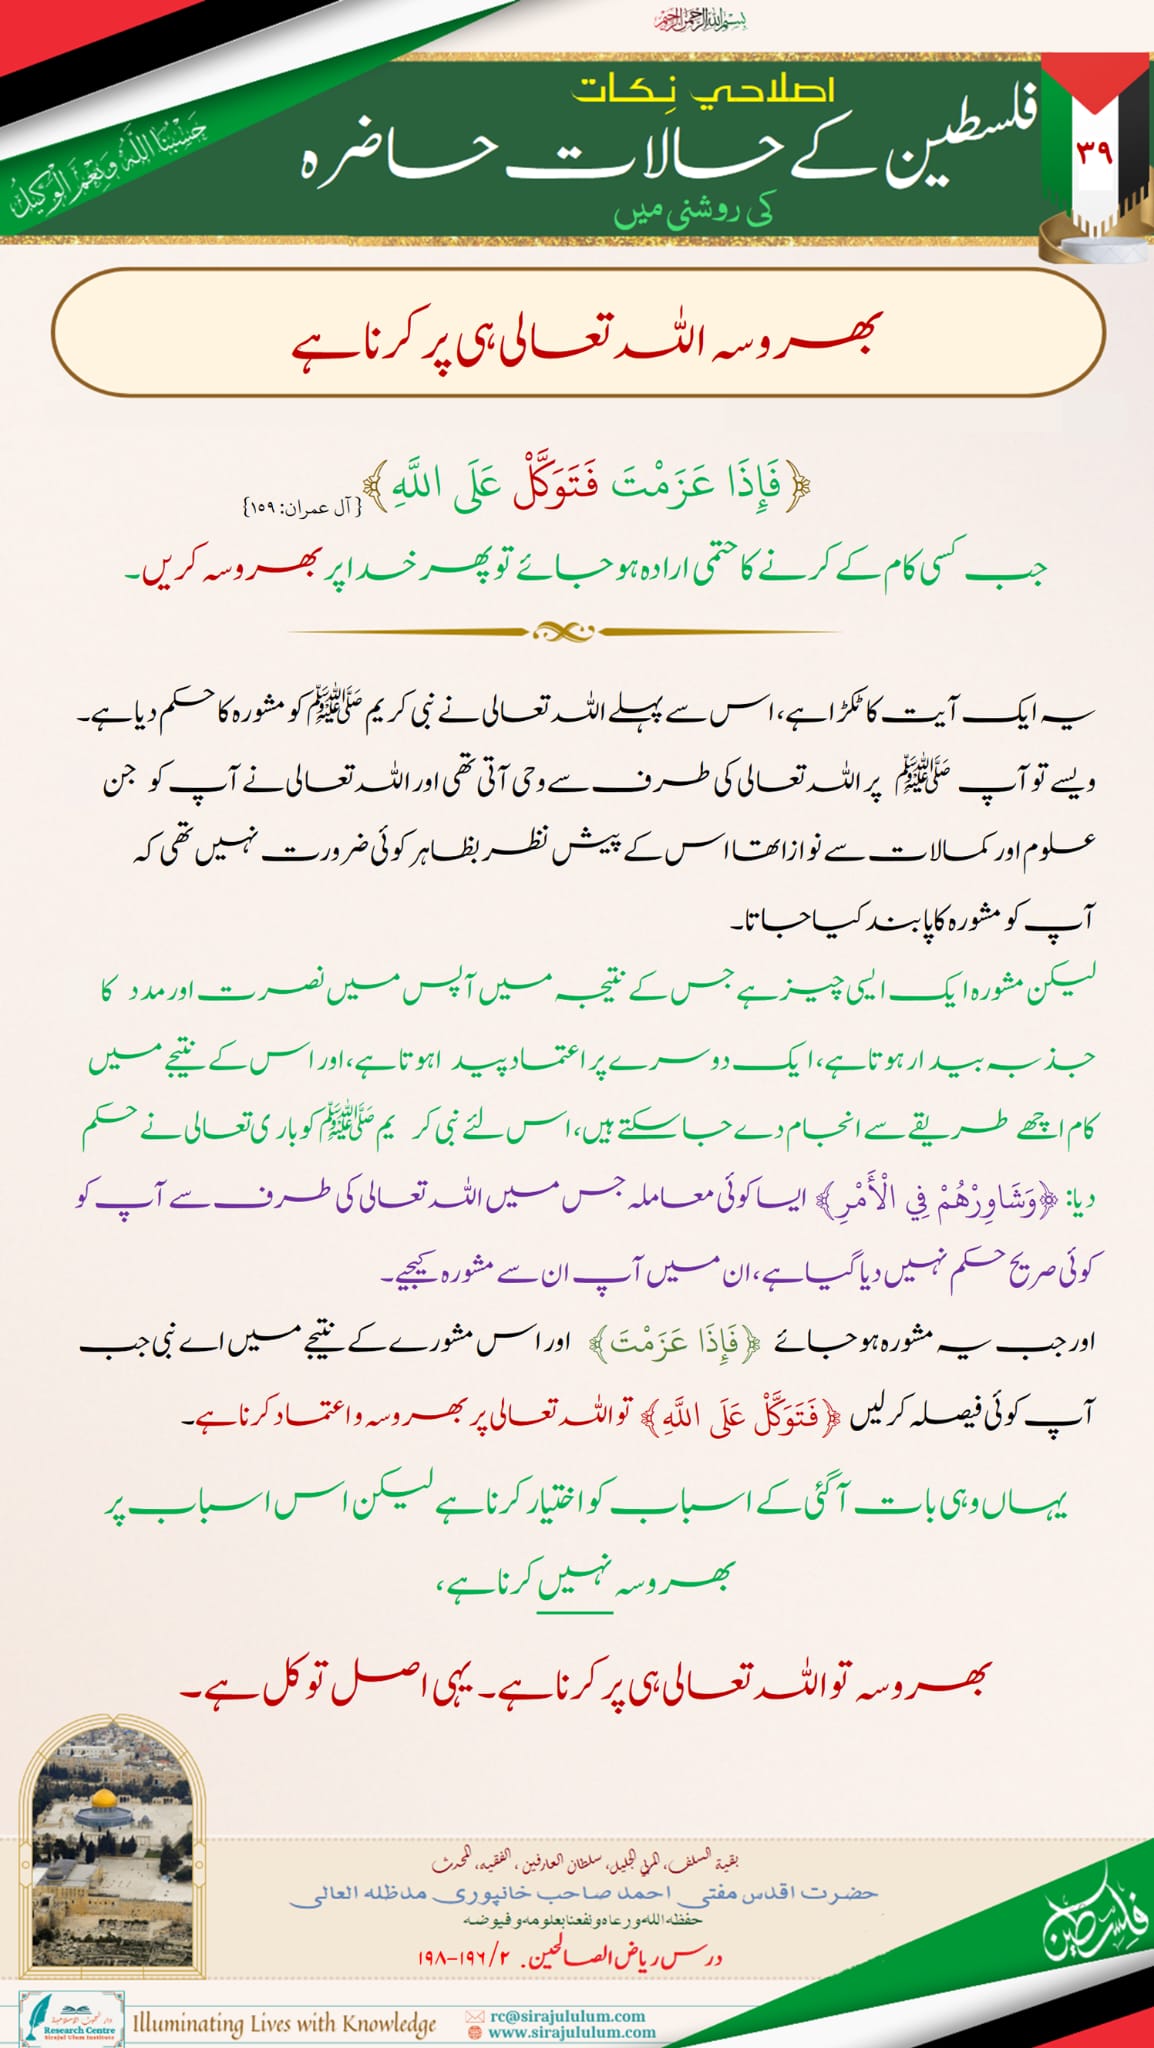 بسم الله الرحمن الرحيم
اصلاحي نِكات
فلسطین کے حالات حاضرہ
کی روشنی میں
۳۹
حَسْبُنَا اللَّهُ وَنِعْمَ الْوَكِيلُ
بھروسہ اللہ تعالی ہی پر کرنا ہے
﴿فَإِذَا عَزَمْتَ فَتَوَكَّلْ عَلَى اللَّهِ﴾ {آل عمران: ۱۵۹}
جب کسی کام کے کرنے کا حتمی ارادہ ہو جائے تو پھر خدا پر بھروسہ کریں۔
یہ ایک آیت کا ٹکڑا ہے، اس سے پہلے اللہ تعالی نے نبی کریم ﷺ کو مشورہ کا حکم دیا ہے۔
ویسے تو آپ ﷺ پر اللہ تعالی کی طرف سے وحی آتی تھی اور اللہ تعالی نے آپ کو جن
علوم اور کمالات سے نوازا تھا اس کے پیش نظر بظاہر کوئی ضرورت نہیں تھی کہ
آپ کو مشورہ کا پابند کیا جاتا۔
لیکن مشورہ ایک ایسی چیز ہے جس کے نتیجہ میں آپس میں نصرت اور مدد کا
جذبہ بیدار ہوتا ہے، ایک دوسرے پر اعتماد پیدا ہوتا ہے، اور اس کے نتیجے میں
کام اچھے طریقے سے انجام دے جا سکتے ہیں، اس لئے نبی کریم ﷺ کو باری تعالی نے حکم
دیا: ﴿وَشَاوِرْهُمْ فِي الْأَمْرِ﴾ ایسا کوئی معاملہ جس میں اللہ تعالی کی طرف سے آپ کو
کوئی صریح حکم نہیں دیا گیا ہے، ان میں آپ ان سے مشورہ کیجیے۔
اور جب یہ مشورہ ہو جائے ﴿فَإِذَا عَزَمْتَ﴾ اور اس مشورے کے نتیجے میں اے نبی جب
آپ کوئی فیصلہ کرلیں ﴿فَتَوَكَّلْ عَلَى اللَّهِ﴾ تو اللہ تعالی پر بھروسہ و اعتماد کرنا ہے۔
یہاں وہی بات آگئی کے اسباب کو اختیار کرنا ہے لیکن اس اسباب پر
بھروسہ نہیں کرنا ہے،
بھروسہ تو اللہ تعالی ہی پر کرنا ہے۔ یہی اصل توکل ہے۔
بقیة السلف، المربی الجلیل، سلطان العارفین، الفقیہ، المحدث
حضرت اقدس مفتی احمد صاحب خانپوری مدظلہ العالی
حفظه الله ورعاه ونفعنا بعلومه وفيوضه
درس ریاض الصالحین. ۲/ ۱۹۶-۱۹۸
فلسطين
Research Centre
Sirajul Ulum Institute
Illuminating Lives with Knowledge
rc@sirajululum.com
www.sirajululum.com